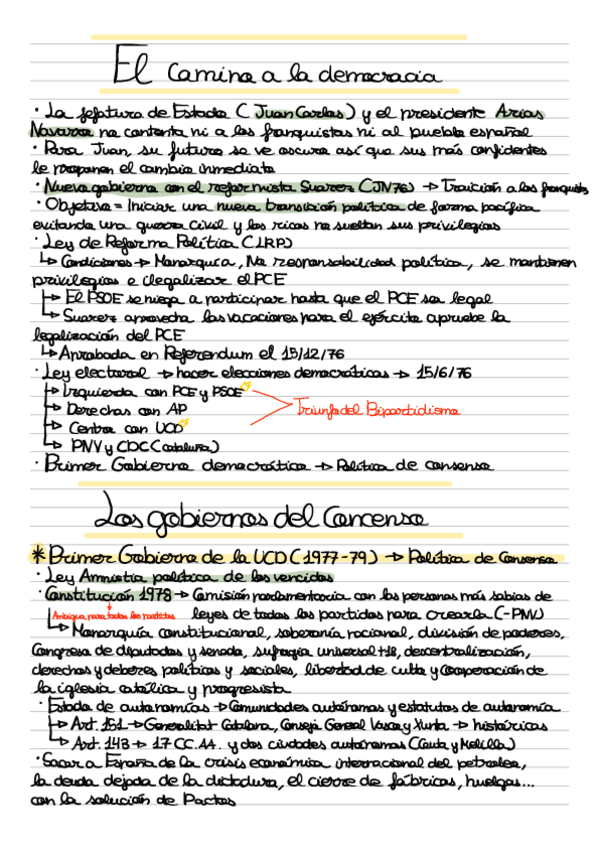 El Camino a la democracia
· La jefatura de Estado (Juan Carlos) y el presidente Arias
Navarro no contenta ni a los franquistas ni al pueblo español
· Para Juan, su futuro se ve oscuro así que sus más confidentes
le proponen el cambio inmediato
· Nuevo gobierno con el reformista Suarez (JN76) → Traición a los franquists
· Objetivo = Iniciar una nueva transición política de forma pacífica
evitando una guerra civil y los ricos no sueltan sus privilegios
· Ley de Reforma Política (LRP)
↳ Condiciones → Monarquía, No responsabilidad política, se mantienen
privilegios e ilegalizar el PCE
↳ El PSOE se niega a participar hasta que el PCE sea legal
↳ Suarez aprovecha las vacaciones para el ejército apruebe la
legalización del PCE
↳ Aprobada en Referendum el 15/12/76
· Ley electoral → hacer elecciones democráticas → 15/6/76
↳ Izquierda con PCE y PSOE
↳ Derechas con AP
Triunfo del Bipartidismo
↳ Centro con UCD
↳ PNV y CDC (Cataluña)
· Primer Gobierno democrático → Política de consenso
Los gobiernos del Concenso
* Primer Gobierno de la UCD (1977-79) → Política de Consenso
· Ley Amnistia política de los vencidos
· Constitución 1978 → Comisión parlamentaria con las personas más sabias de
Ambigua para todos los partidos
leyes de todos los partidos para crearla (-PNV)
↳ Monarquía constitucional, soberanía nacional, división de poderes,
Congreso de diputados y senado, sufragio universal +18, descentralización,
derechos y deberes políticos y sociales, libertad de culto y cooperación de
la iglesia católica y progresista
· Estado de autonomías → Comunidades autónomas y estatutos de autonomía
↳ Art. 151 → Generalitat Catalana, Consejo General Vasco y Xunta → históricas
↳ Art. 143 → 17 CC.AA. y dos ciudades autónomas (Ceuta y Melilla)
· Sacar a España de la crisis económica internacional del petroleo,
la deuda dejada de la dictadura, el cierre de fábricas, huelgas...
con la solución de Pactos